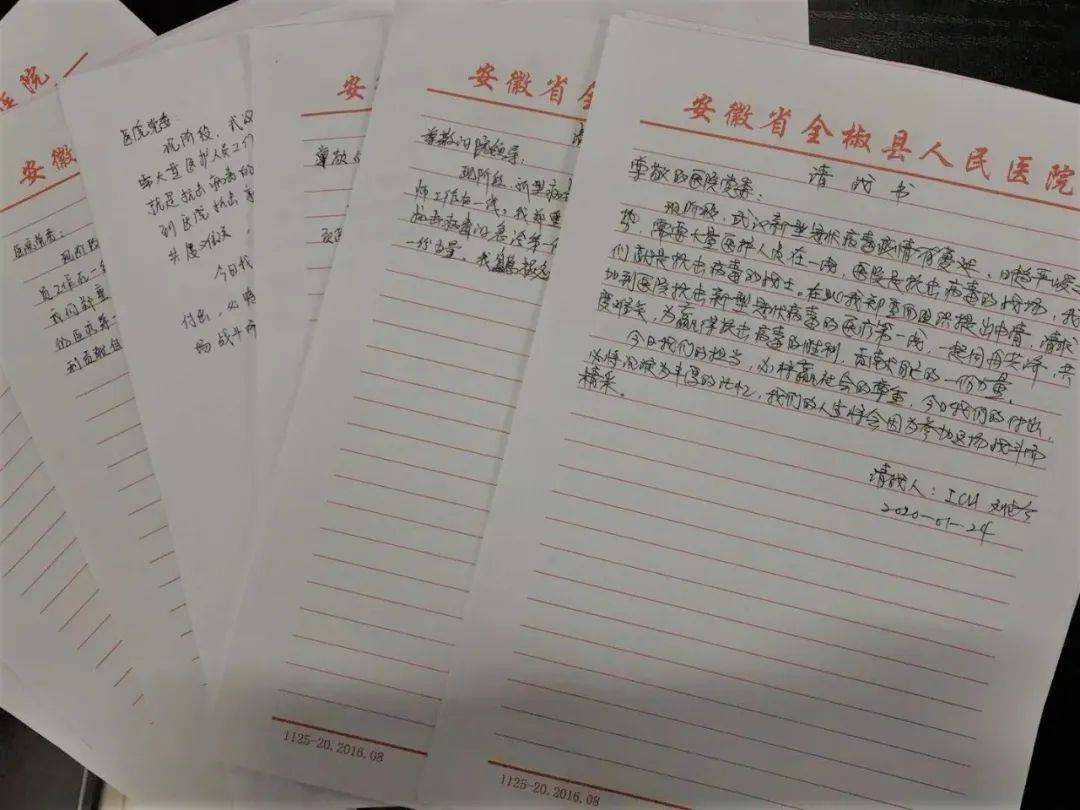 医院
安徽
医院党委:
员工作在一
我们郑重
医院党委:
现阶段,武汉
需大量医护人员工作
就是抗击病毒的
到医院抗击
共度难关,
今日我
付出,必将
场战斗而
安
尊敬的
安徽省全
尊敬的院领导:
现阶段,新型病
师工作在一线,我郑重
抗击病毒的急诊第一
一份力量。我
1125-20.2016.08
安徽省全椒县人民医院
请战书
尊敬的医院党委:
现阶段,武汉新型冠状病毒疫情有蔓延、日趋严峻之
势,需要大量医护人员在一线,医院是抗击病毒的战场,我
们就是抗击病毒的战士。在此我郑重向组织提出申请,请求
加到医院抗击新型冠状病毒的医疗第一线,一起同舟共济,共
度难关,为赢得抗击病毒的胜利,贡献自己的一份力量。
今日我们的担当,必将赢社会的尊重,今日我们的付出,
必将沉淀为丰厚的记忆,我们的人生将会因为参加这场战斗而
精采。
请战人:ICU
2020-01-24
1125-20.2016.08